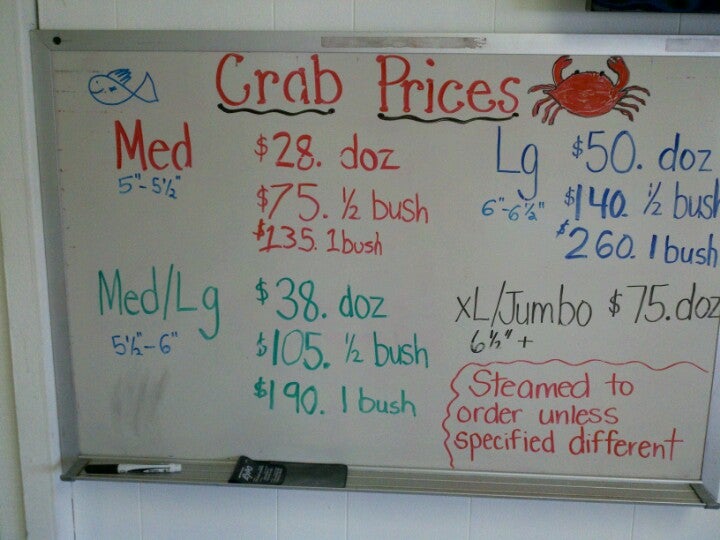 Crab Prices
Med $28. doz
5"-5½"
$75. ½ bush
$135. 1 bush
Med/Lg $38. doz
5½"-6"
$105. ½ bush
$190. 1 bush
Lg $50. doz
6"-6½"
$140. ½ bush
$260. 1 bush
XL/Jumbo $75. doz
6½" +
Steamed to
order unless
specified different